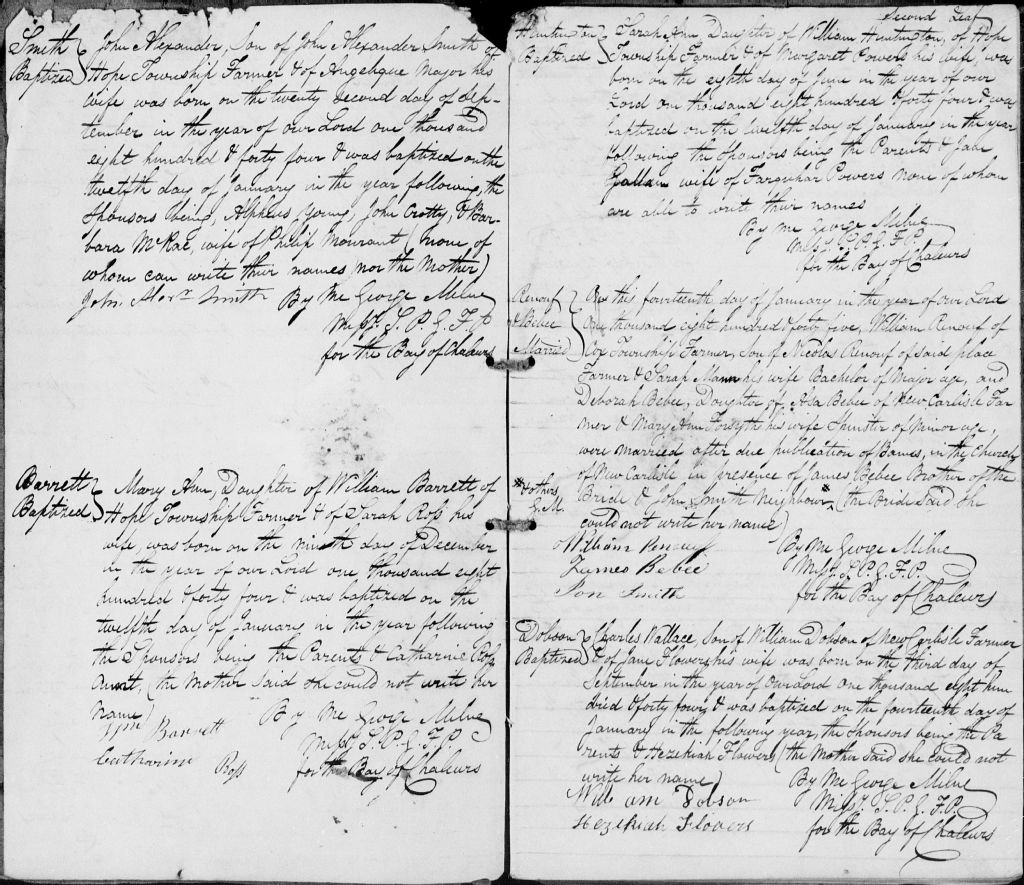 Smith Baptized
John Alexander, Son of John Alexander Smith of
Hope Township Farmer & of Angelique Major his
wife was born on the twenty second day of Sep-
tember in the year of our Lord one thousand
eight hundred & forty four & was baptized on the
twelfth day of January in the year following, the
Sponsors being, Alpheus Young, John Crotty, & Bar-
bara McRae, wife of Philip Mourant (none of
whom can write their names nor the Mother)
John Alexr Smith By Me George Milne
Missy. S. P. G. F. P.
for the Bay of Chaleurs
Barrett Baptized
Mary Ann, Daughter of William Barrett of
Hope Township Farmer & of Sarah Ross his
wife, was born on the ninth day of December
in the year of our Lord one thousand eight
hundred & forty four & was baptized on the
twelfth day of January in the year following
the Sponsors being the Parents & Catharine Ross
Aunt, (the Mother said she could not write her
name)
Wm Barrett By Me George Milne
Catharine Ross Missy. S. P. G. F. P.
for the Bay of Chaleurs
Second Leaf
Huntington Baptized
Sarah Ann Daughter of William Huntington, of Hope
Township Farmer & of Margaret Powers his wife, was
born on the eighth day of June in the year of our
Lord on thousand eight hundred & forty four & was
baptized on the twelfth day of January in the year
following the Sponsors being the Parents & Jane
Gallan wife of Farquhar Powers none of whom
are able to write their names
By me George Milne
Missy. S. P. G. F. P.
for the Bay of Chaleurs
Renouf & Bebee Married
On this fourteenth day of January in the year of our Lord
One thousand eight hundred & forty five, William Renouf of
Cox Township Farmer, Son of Nicolas Renouf of said place
Farmer & Sarah Mann his wife Bachelor of Major age, and
Deborah Bebee, Daughter of Asa Bebee of New Carlisle Far
mer & Mary Ann Forsyth his wife Spinster of Minor age,
were married after due publication of Banns, in the Church
of New Carlisle in presence of James Bebee Brother of the
* & others G. M.
Bride & John Smith Neighbour, (the Bride said she
could not write her name)
William Renouf By Me George Milne
James Bebee Missy. S. P. G. F. P.
Jon Smith for the Bay of Chaleurs
Dobson Baptized
Charles Wallace, Son of William Dobson of New Carlisle Farmer
& of Jane Flowers his wife was born on the third day of
September in the year of Our Lord one thousand eight hun
dred & forty four, & was baptized on the fourteenth day of
January in the following year, the Sponsors being the Pa
rents & Hezekiah Flowers (the Mother said she could not
write her name) By Me George Milne
William Dobson Missy. S. P. G. F. P.
Hezekiah Flowers for the Bay of Chaleurs